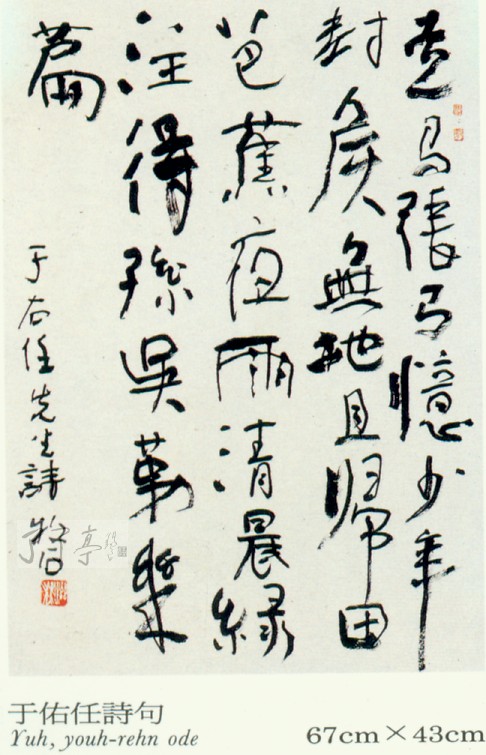 馬張弓憶少年
封侯無地且歸田
芭蕉夜雨清晨綠
注得孫吳第幾
篇
于右任先生詩
于佑任詩句
Yuh, youh-rehn ode
67cm×43cm